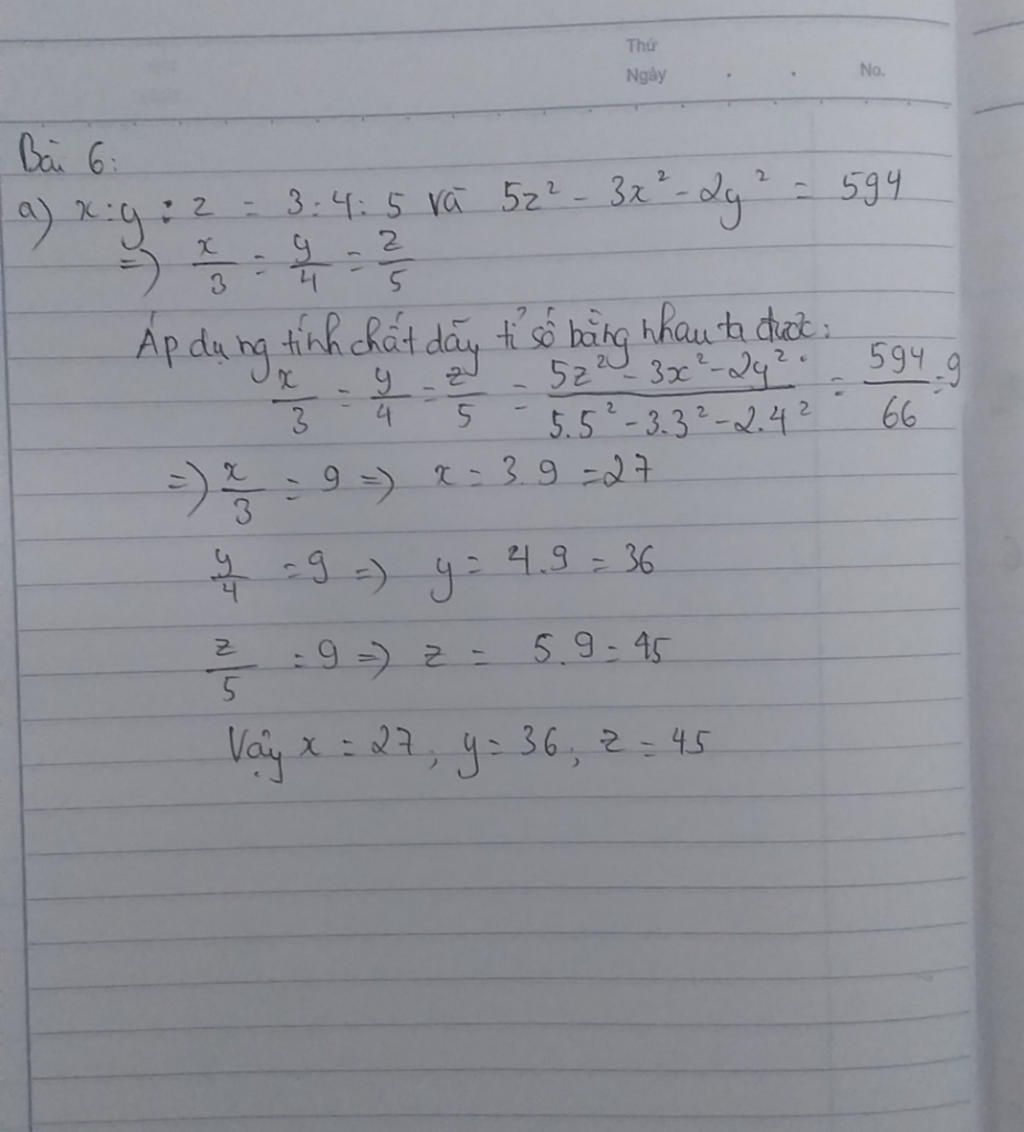 Thứ
Ngày . . No.
Bài 6:
a) x:y:z = 3:4:5 và 5z² - 3x² - 2y² = 594
=) x/3 = y/4 = z/5
Áp dụng tính chất dãy tỉ số bằng nhau ta được:
x/3 = y/4 = z/5 = (5z² - 3x² - 2y²)/(5.5² - 3.3² - 2.4²) = 594/66 = 9
=) x/3 = 9 =) x = 3.9 = 27
y/4 = 9 =) y = 4.9 = 36
z/5 = 9 =) z = 5.9 = 45
Vậy x = 27, y = 36, z = 45